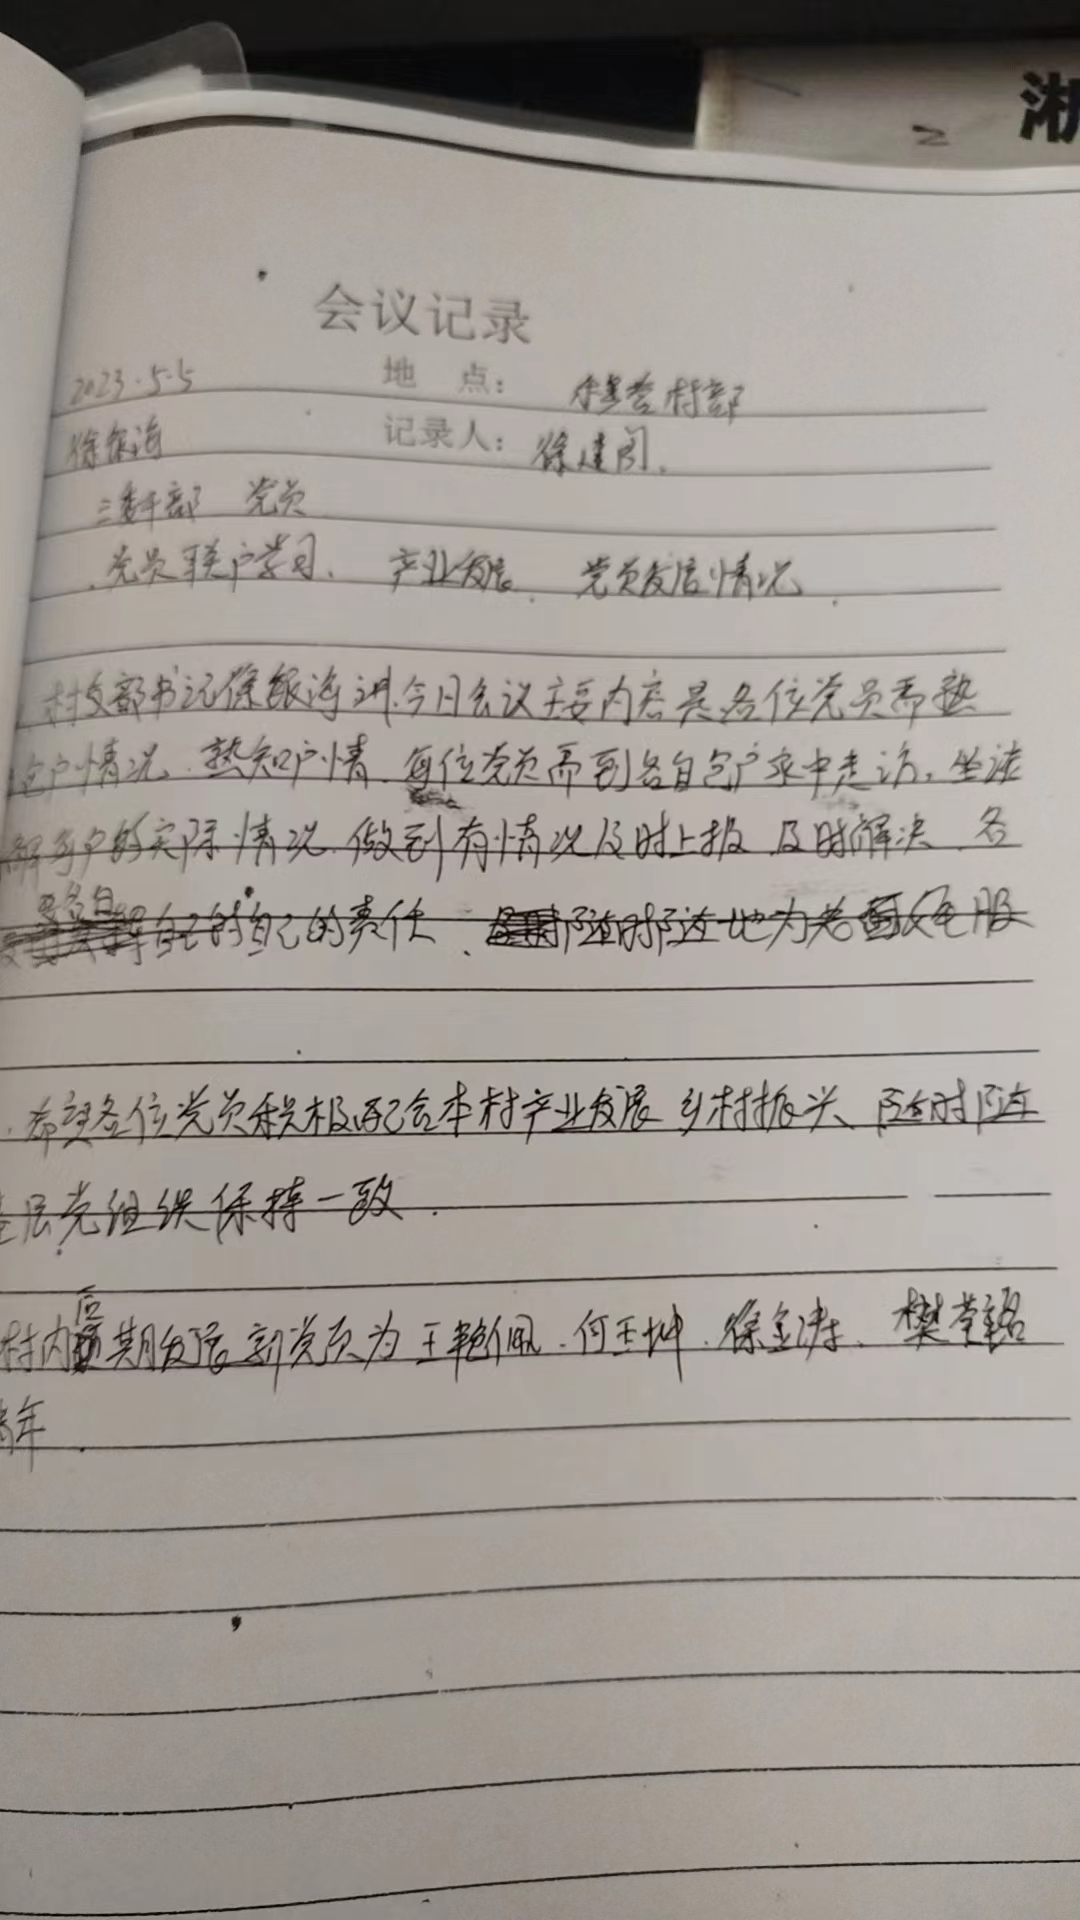 淅
会议记录
2023.5.5 地 点: 村部
徐银海 记录人: 徐建阁.
三委干部 党员
党员联户学习、 产业发展、 党员发展情况.
村支部书记徐银海讲.今日会议主要内容是.各位党员需熟
包户情况.熟知户情.每位党员需到各自包户家中走访.坐谈
解每户的实际情况.做到有情况及时上报.及时解决.各
自己的自己的责任、随时随地为老百姓服
希望各位党员积极配合本村产业发展 乡村振兴、随时随
基层党组织保持一致.
村内后期发展新党员为王艳佩.何玉坤.徐金涛、樊莹铭
青年.